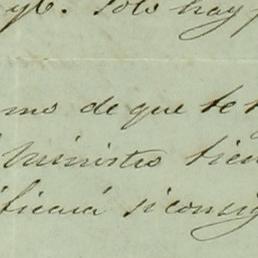 yo. Solo hay
mo de que te
Ministro tien
ficará si consig